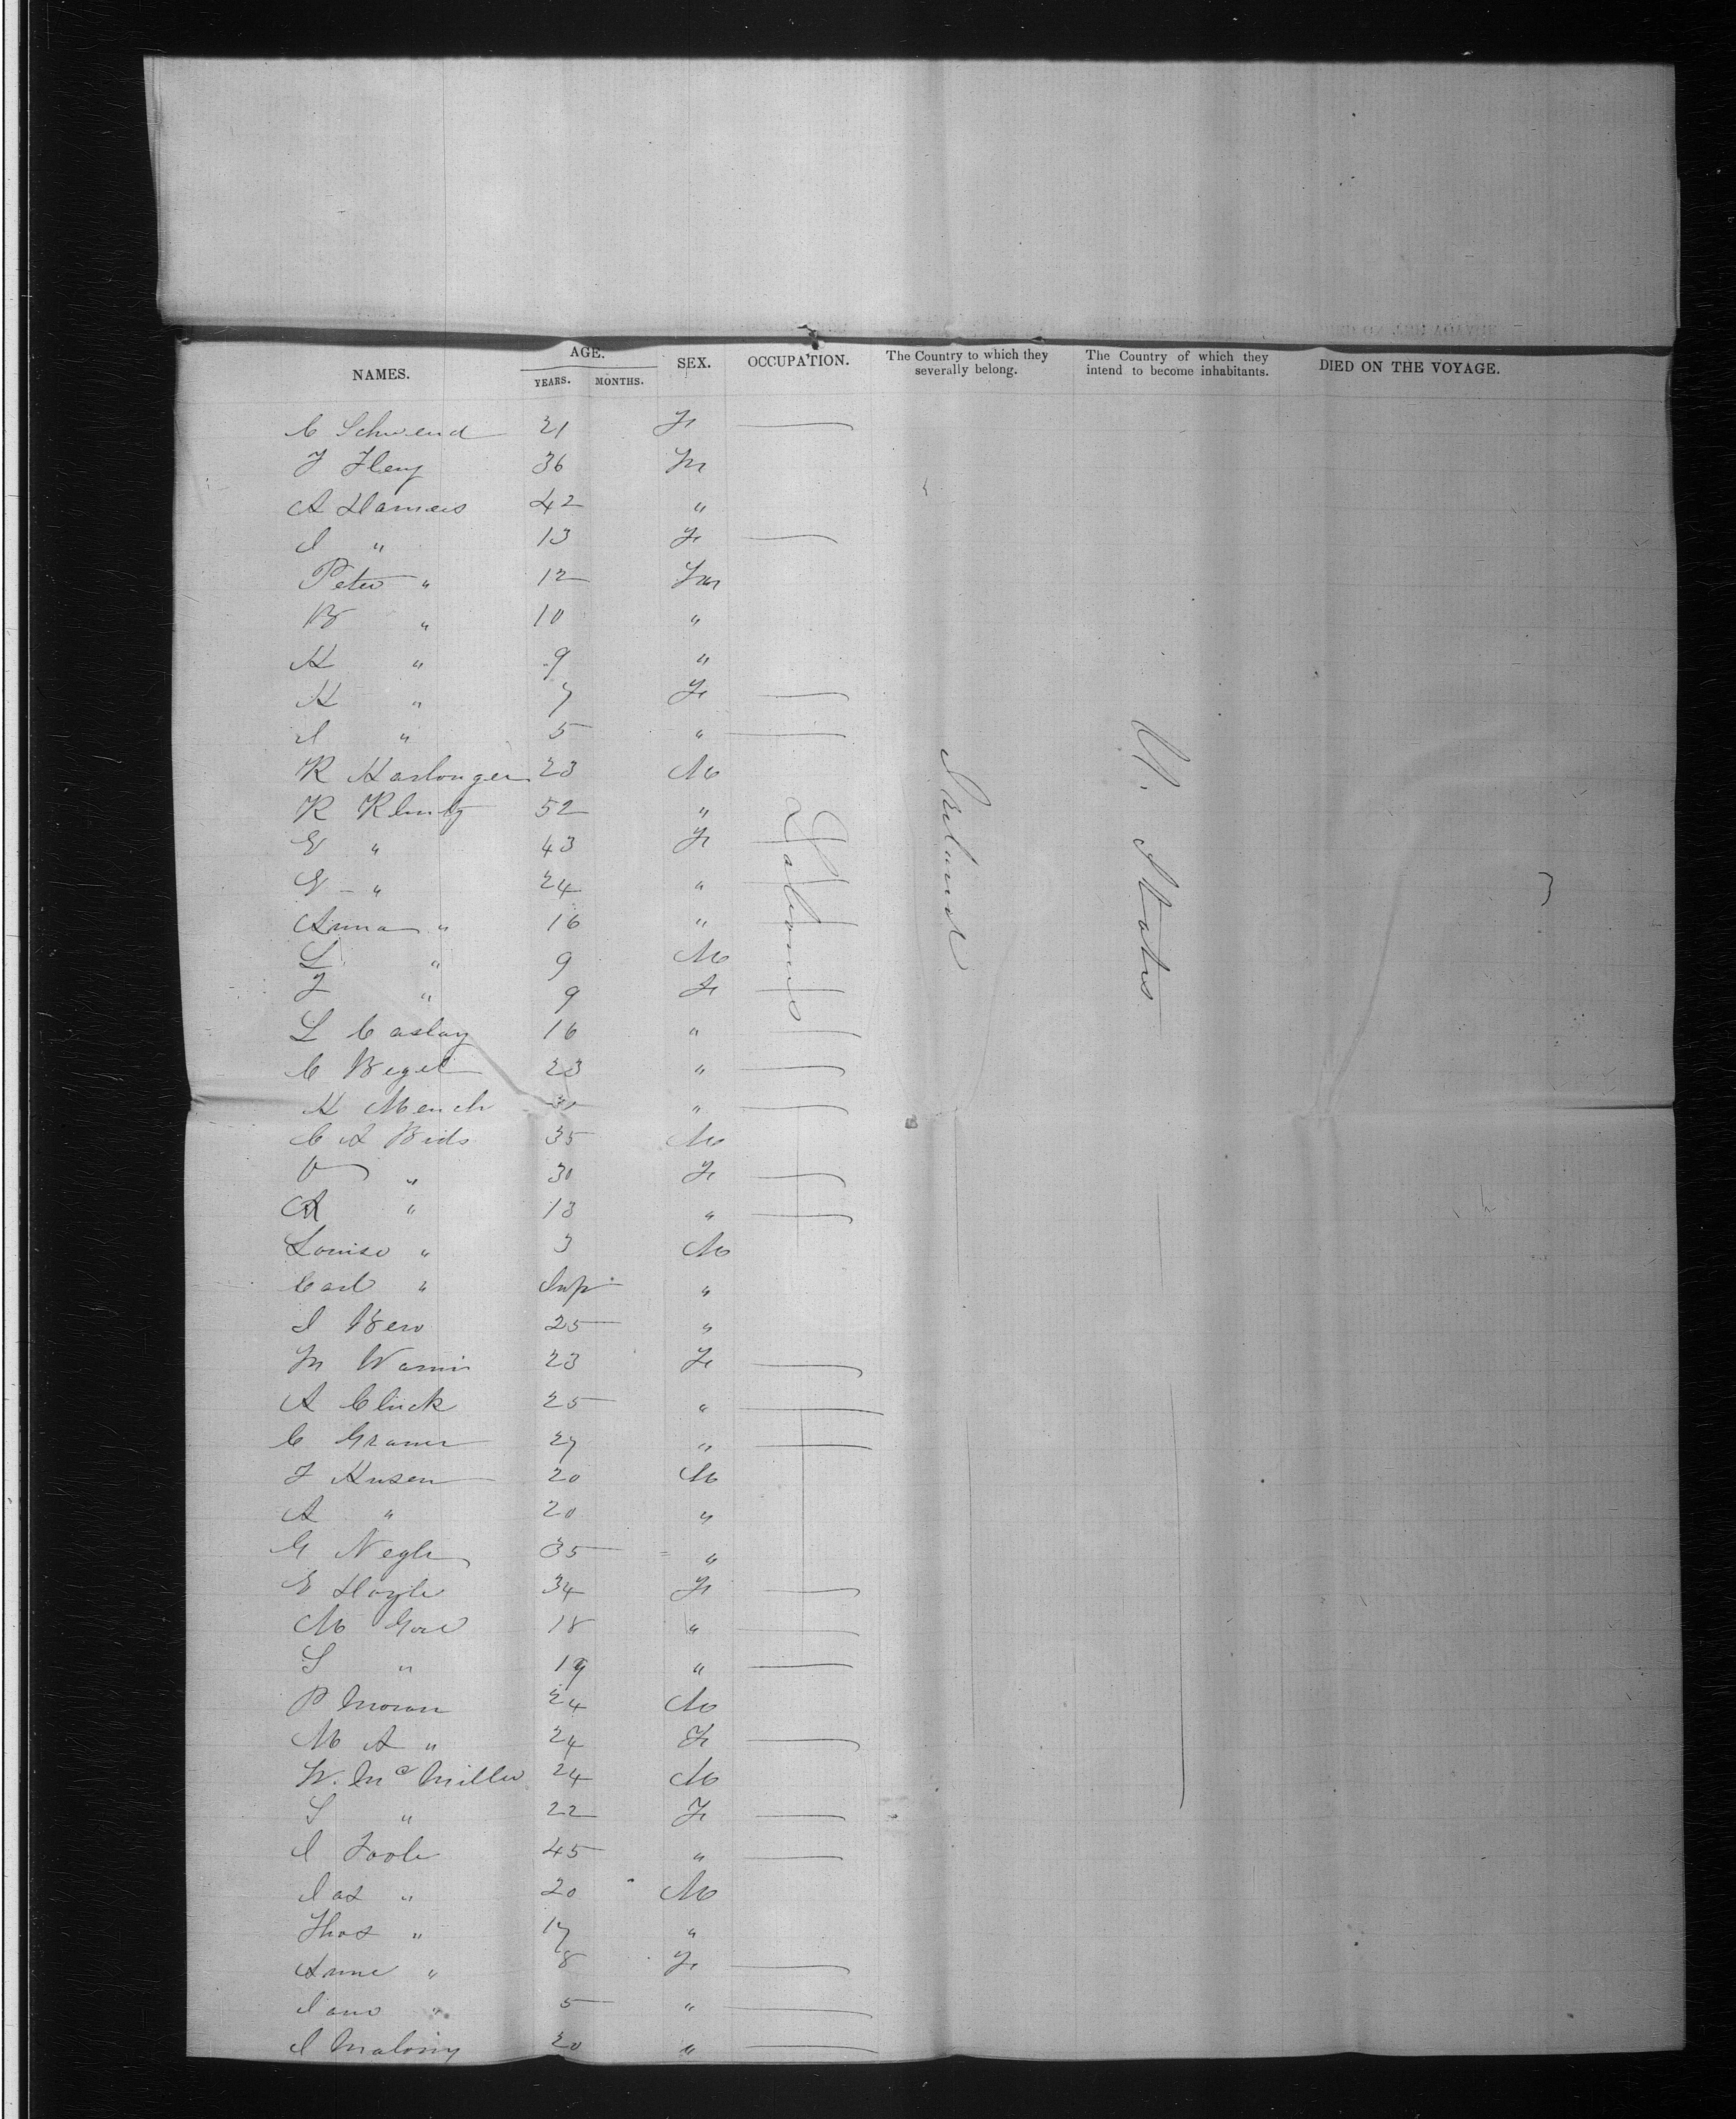 NAMES. AGE. YEARS. MONTHS. SEX. OCCUPATION. The Country to which they severally belong. The Country of which they intend to become inhabitants. DIED ON THE VOYAGE.
C Schwend 21 F
J Fleny 36 M
A Hameis 42 "
J " 13 F
Peter " 12 M
B " 10 "
H " 9 "
H " 7 F
J " 5 "
R Haslonger 23 M
R Kluntz 52 "
E " 43 F
E " 24 "
Anna " 16 "
L " 9 M
J " 9 F
L Caslay 16 "
C Begel 23 "
H Mench "
C A Beids 35 M
" 30 F
A " 13 "
Louise " 3 M
Carl " Inf "
J Bew 25 "
M Wamir 23 F
A Clück 25 "
C Gramer 27 "
J Husen 20 M
A " 20 "
G Negle 35 "
E Hoyle 34 F
M Gore 18 "
S " 19 "
P Moran 24 M
M A " 24 F
W. Mc Miller 24 M
S " 22 F
J Toole 45 "
Jas " 20 M
Thos " 17 "
Anne " 8 F
Jane " 5 "
J Malony 20 "
Labourers
Ireland
U. States